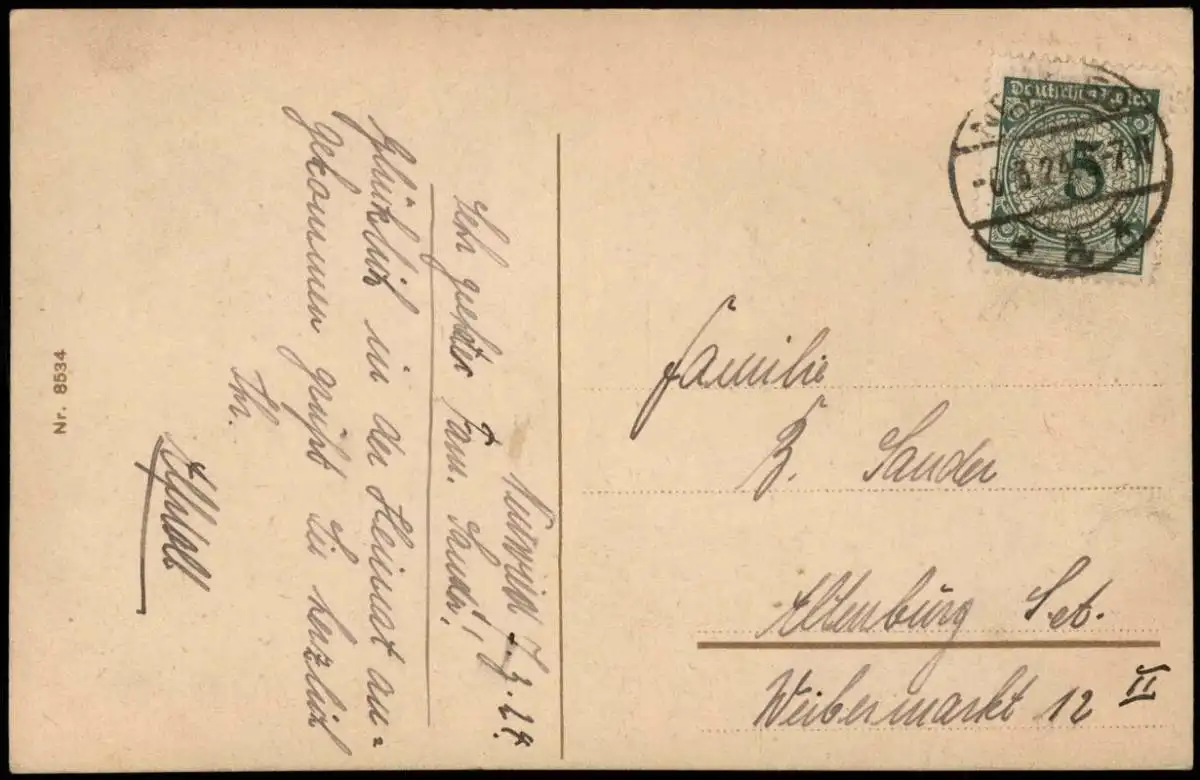 Neuwied 7.3.24.
Sehr geehrter Fam. Sander!
Glücklich in der Heimat an-
gekommen grüßt Sie herzlich
Ihr.
Nr. 8534
Deutsches Reich
5
24 5-7 N
* a *
Familie
B. Sander
Altenburg S.
Weibermarkt 12 II